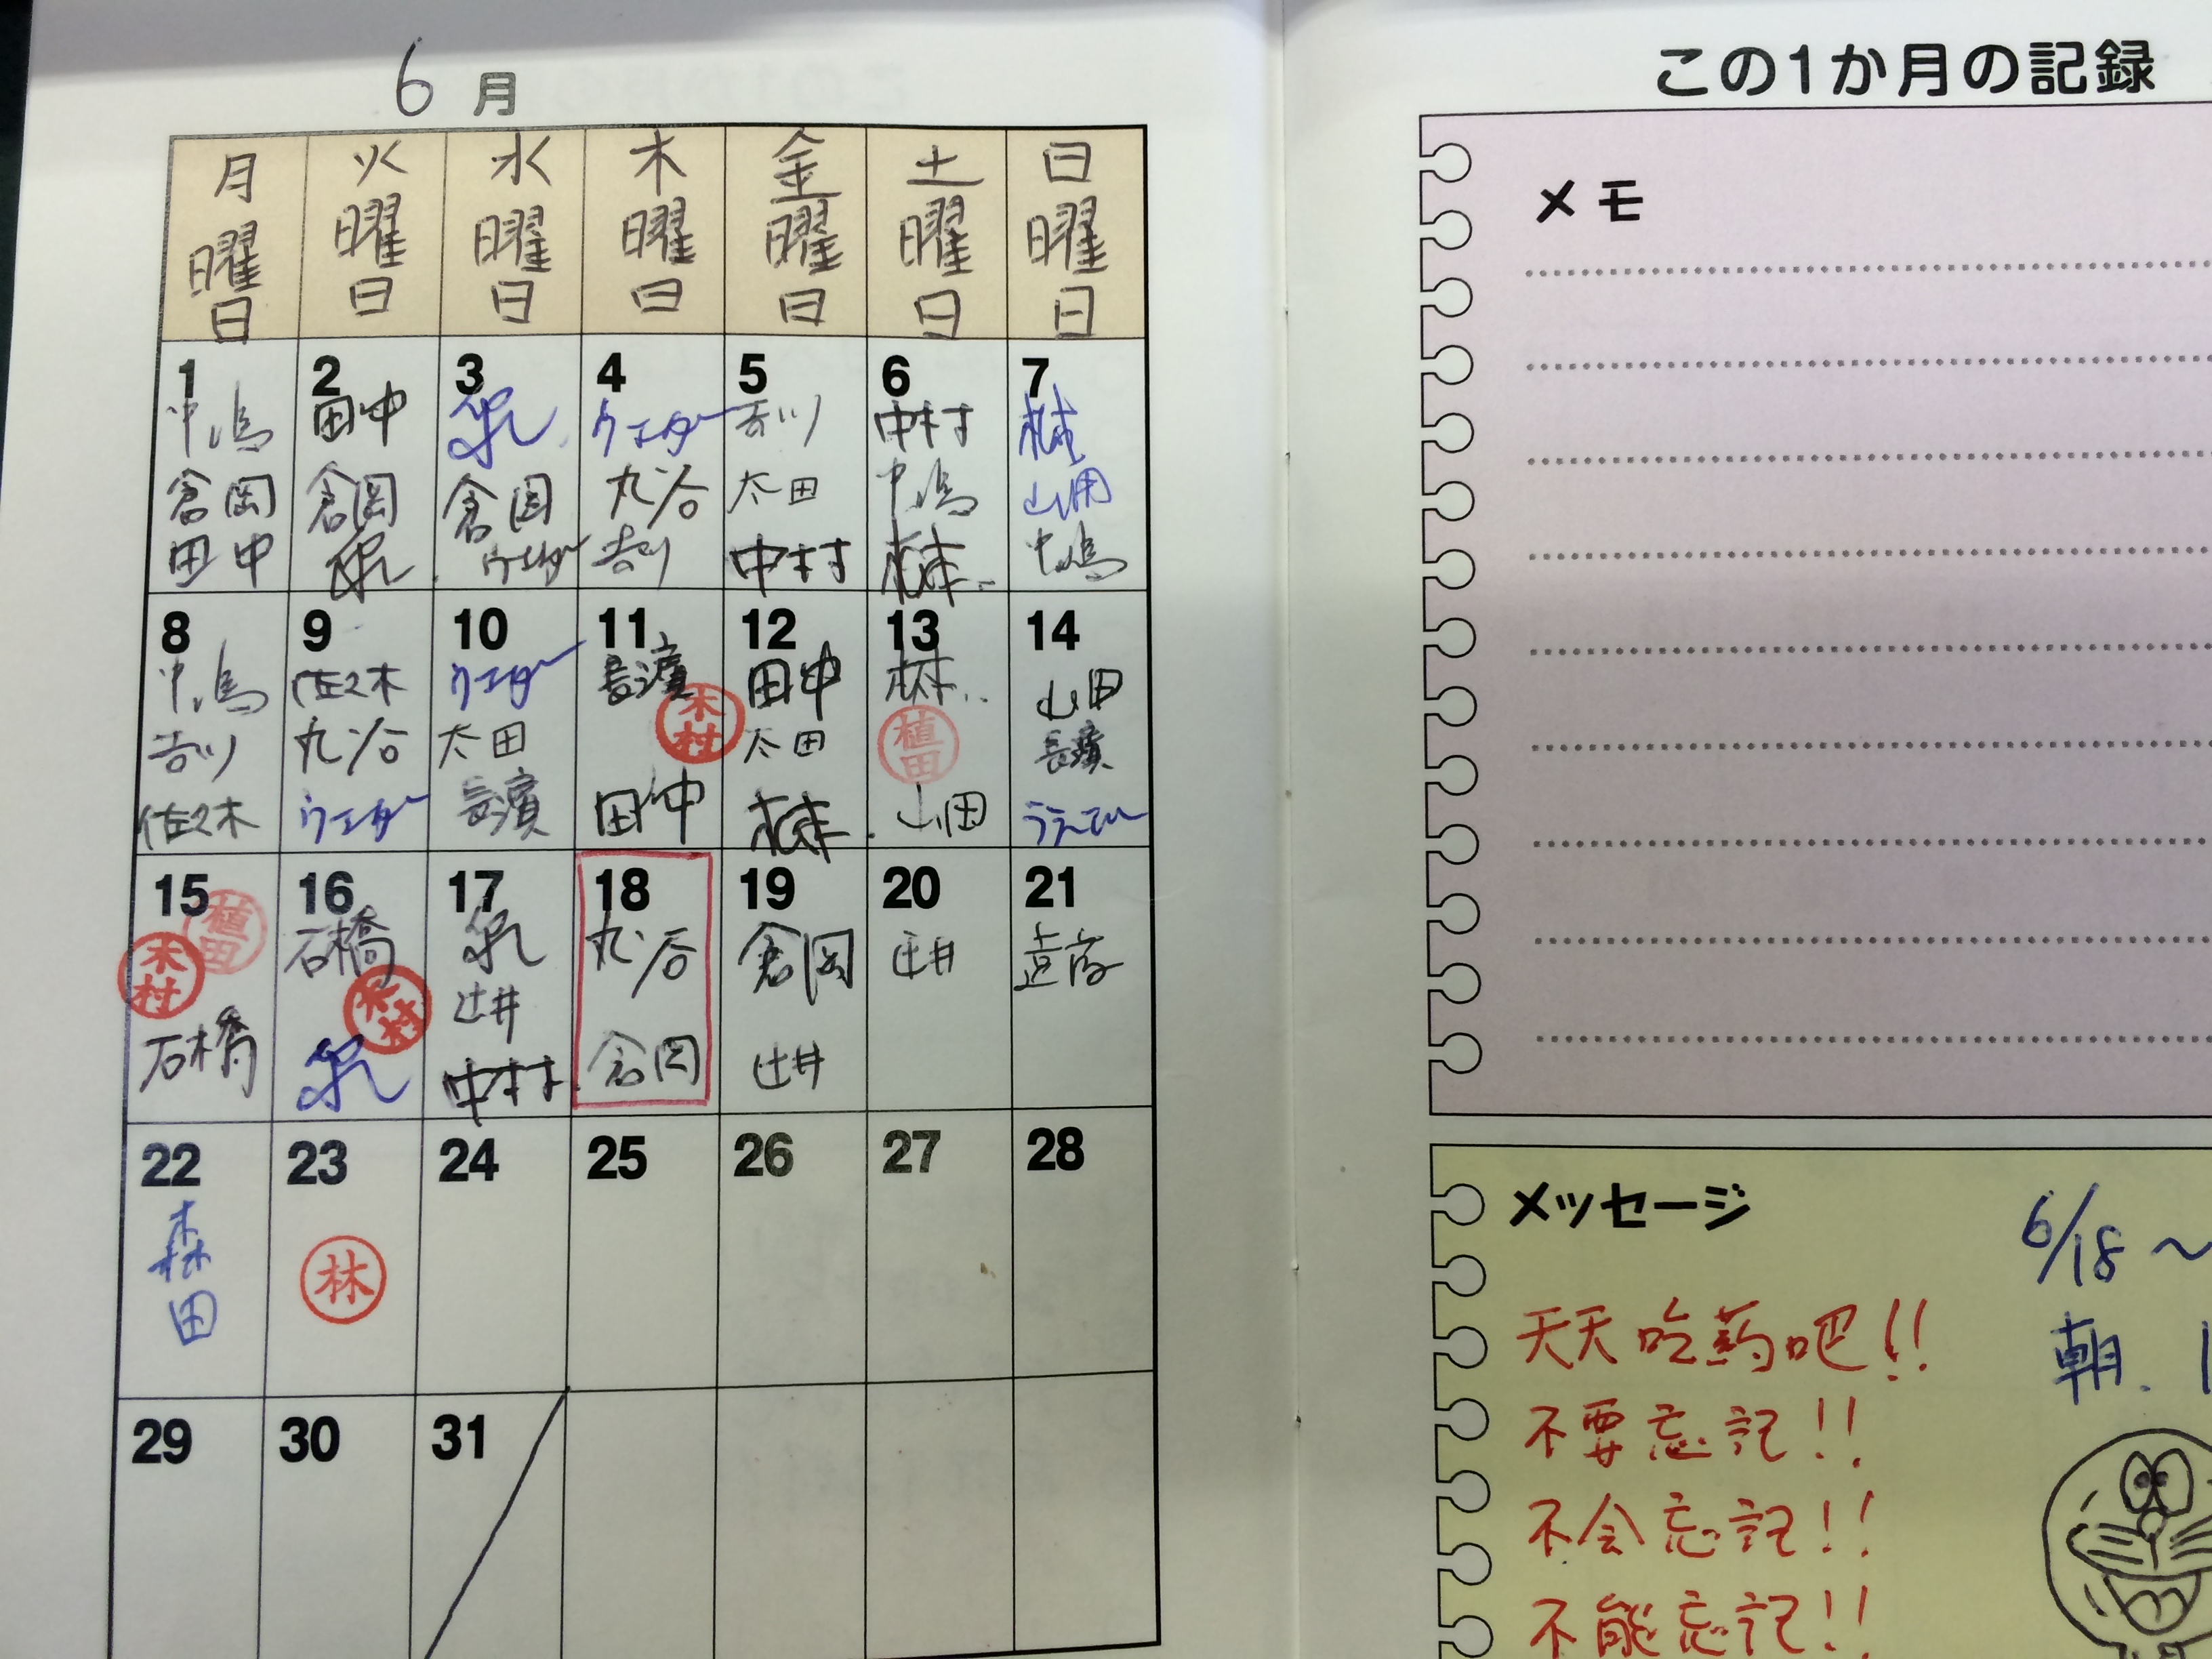 6月
月曜日
火曜日
水曜日
木曜日
金曜日
土曜日
日曜日
1
中嶋
倉岡
田中
2
田中
倉岡
3
倉岡
ウエダー
4
ウエダー
丸谷
吉川
5
吉川
太田
中村
6
中村
中嶋
林
7
林
山田
中嶋
8
中嶋
吉川
佐々木
9
佐々木
丸谷
ウエダー
10
ウエダー
太田
長濱
11
長濱
木村
田中
12
田中
太田
林
13
林
植田
山田
14
山田
長濱
15
植田
木村
石橋
16
石橋
木村
17
辻井
中村
18
丸谷
倉岡
19
倉岡
辻井
20
辻井
21
22
森田
23
林
24
25
26
27
28
29
30
31
この1か月の記録
メモ
メッセージ
6/18～
朝.1
天天吃药吧!!
不要忘記!!
不会忘記!!
不能忘記!!